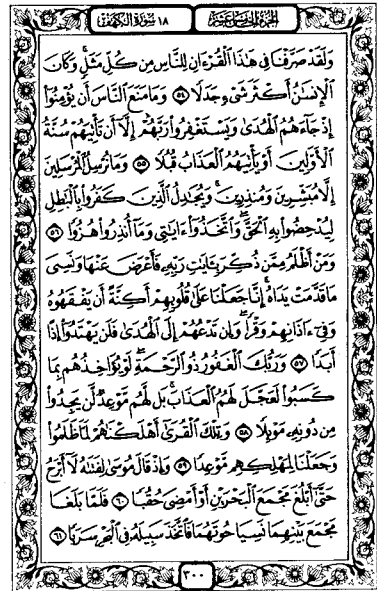 الجزء الخامس عشر ١٨ سورة الكهف
وَلَقَدْ صَرَّفْنَا فِي هَٰذَا الْقُرْءَانِ لِلنَّاسِ مِن كُلِّ مَثَلٍ ۚ وَكَانَ
الْإِنسَٰنُ أَكْثَرَ شَيْءٍ جَدَلًا ٥٤ وَمَا مَنَعَ النَّاسَ أَن يُؤْمِنُوا
إِذْ جَاءَهُمُ الْهُدَىٰ وَيَسْتَغْفِرُوا رَبَّهُمْ إِلَّا أَن تَأْتِيَهُمْ سُنَّةُ
الْأَوَّلِينَ أَوْ يَأْتِيَهُمُ الْعَذَابُ قُبُلًا ٥٥ وَمَا نُرْسِلُ الْمُرْسَلِينَ
إِلَّا مُبَشِّرِينَ وَمُنذِرِينَ ۚ وَيُجَٰدِلُ الَّذِينَ كَفَرُوا بِالْبَٰطِلِ
لِيُدْحِضُوا بِهِ الْحَقَّ ۖ وَاتَّخَذُوا ءَايَٰتِي وَمَا أُنذِرُوا هُزُوًا ٥٦
وَمَنْ أَظْلَمُ مِمَّن ذُكِّرَ بِـَٔايَٰتِ رَبِّهِ فَأَعْرَضَ عَنْهَا وَنَسِيَ
مَا قَدَّمَتْ يَدَاهُ ۚ إِنَّا جَعَلْنَا عَلَىٰ قُلُوبِهِمْ أَكِنَّةً أَن يَفْقَهُوهُ
وَفِي ءَاذَانِهِمْ وَقْرًا ۖ وَإِن تَدْعُهُمْ إِلَى الْهُدَىٰ فَلَن يَهْتَدُوا إِذًا
أَبَدًا ٥٧ وَرَبُّكَ الْغَفُورُ ذُو الرَّحْمَةِ ۖ لَوْ يُؤَاخِذُهُم بِمَا
كَسَبُوا لَعَجَّلَ لَهُمُ الْعَذَابَ ۚ بَل لَّهُم مَّوْعِدٌ لَّن يَجِدُوا
مِن دُونِهِ مَوْئِلًا ٥٨ وَتِلْكَ الْقُرَىٰ أَهْلَكْنَٰهُمْ لَمَّا ظَلَمُوا
وَجَعَلْنَا لِمَهْلِكِهِم مَّوْعِدًا ٥٩ وَإِذْ قَالَ مُوسَىٰ لِفَتَىٰهُ لَا أَبْرَحُ
حَتَّىٰ أَبْلُغَ مَجْمَعَ الْبَحْرَيْنِ أَوْ أَمْضِيَ حُقُبًا ٦٠ فَلَمَّا بَلَغَا
مَجْمَعَ بَيْنِهِمَا نَسِيَا حُوتَهُمَا فَاتَّخَذَ سَبِيلَهُ فِي الْبَحْرِ سَرَبًا ٦١
٣٠٠